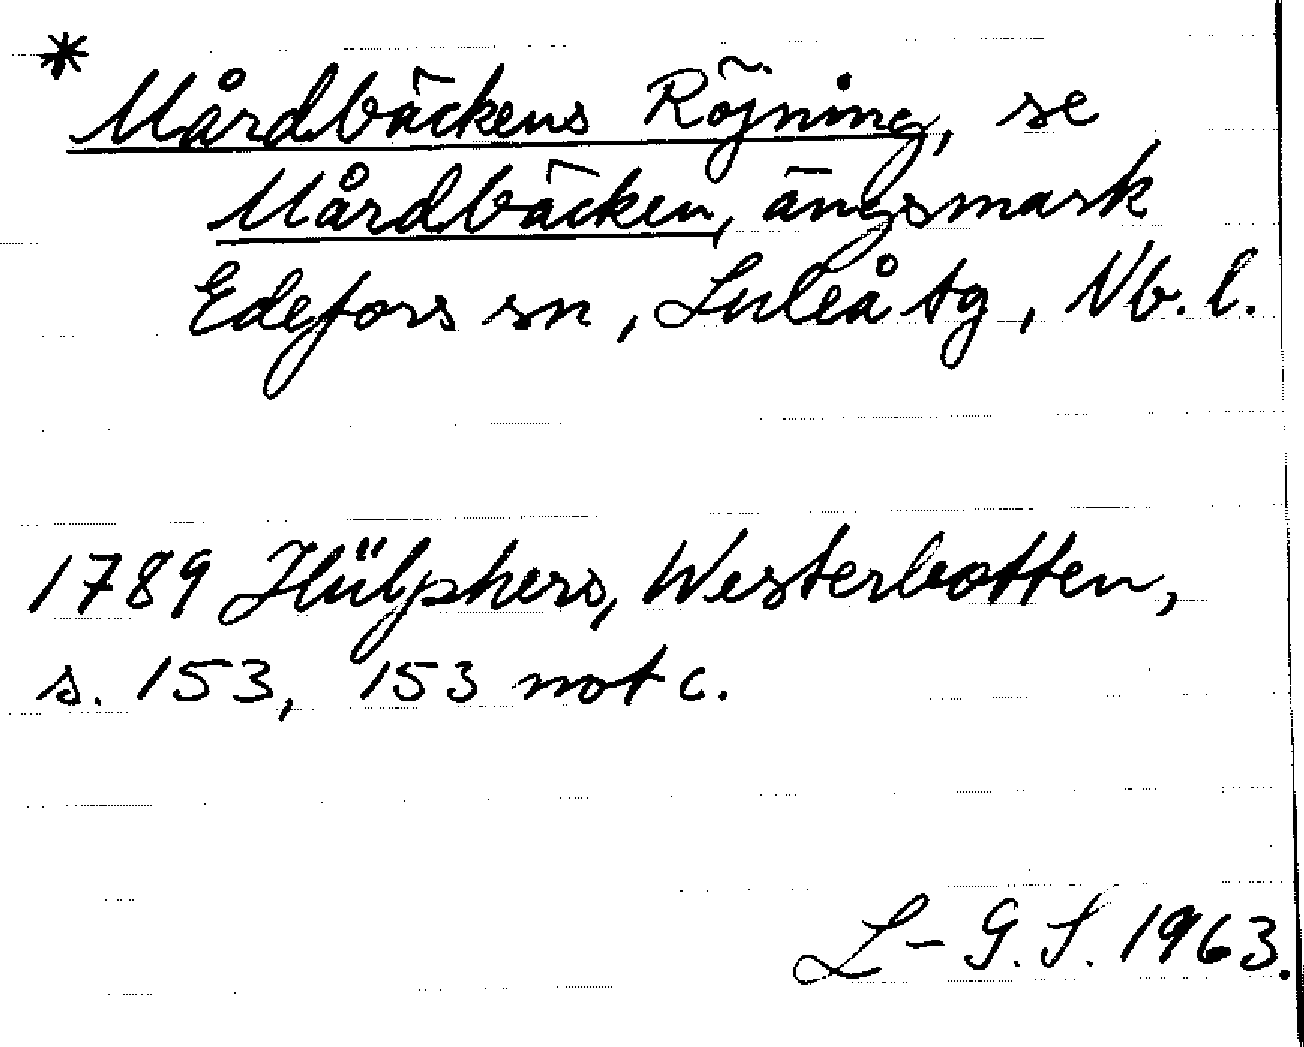 * Mårdbäckens Röjning, se
Mårdbäcken, ängsmark
Edefors sn, Luleå tg, Nb. l.
1789 Hülphers, Westerbotten,
s. 153, 153 not c.
L-G. S. 1963.